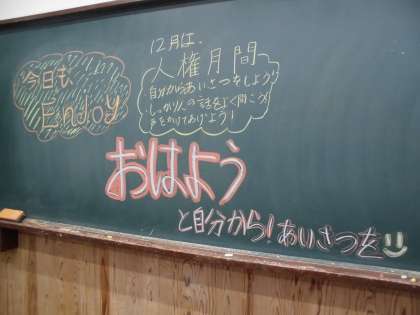 今日も
Enjoy
12月は、
人権月間
自分からあいさつをしよう!
しっかり人の話をよく聞こう!
声をかけてあげよう!
おはよう
と自分から!あいさつを